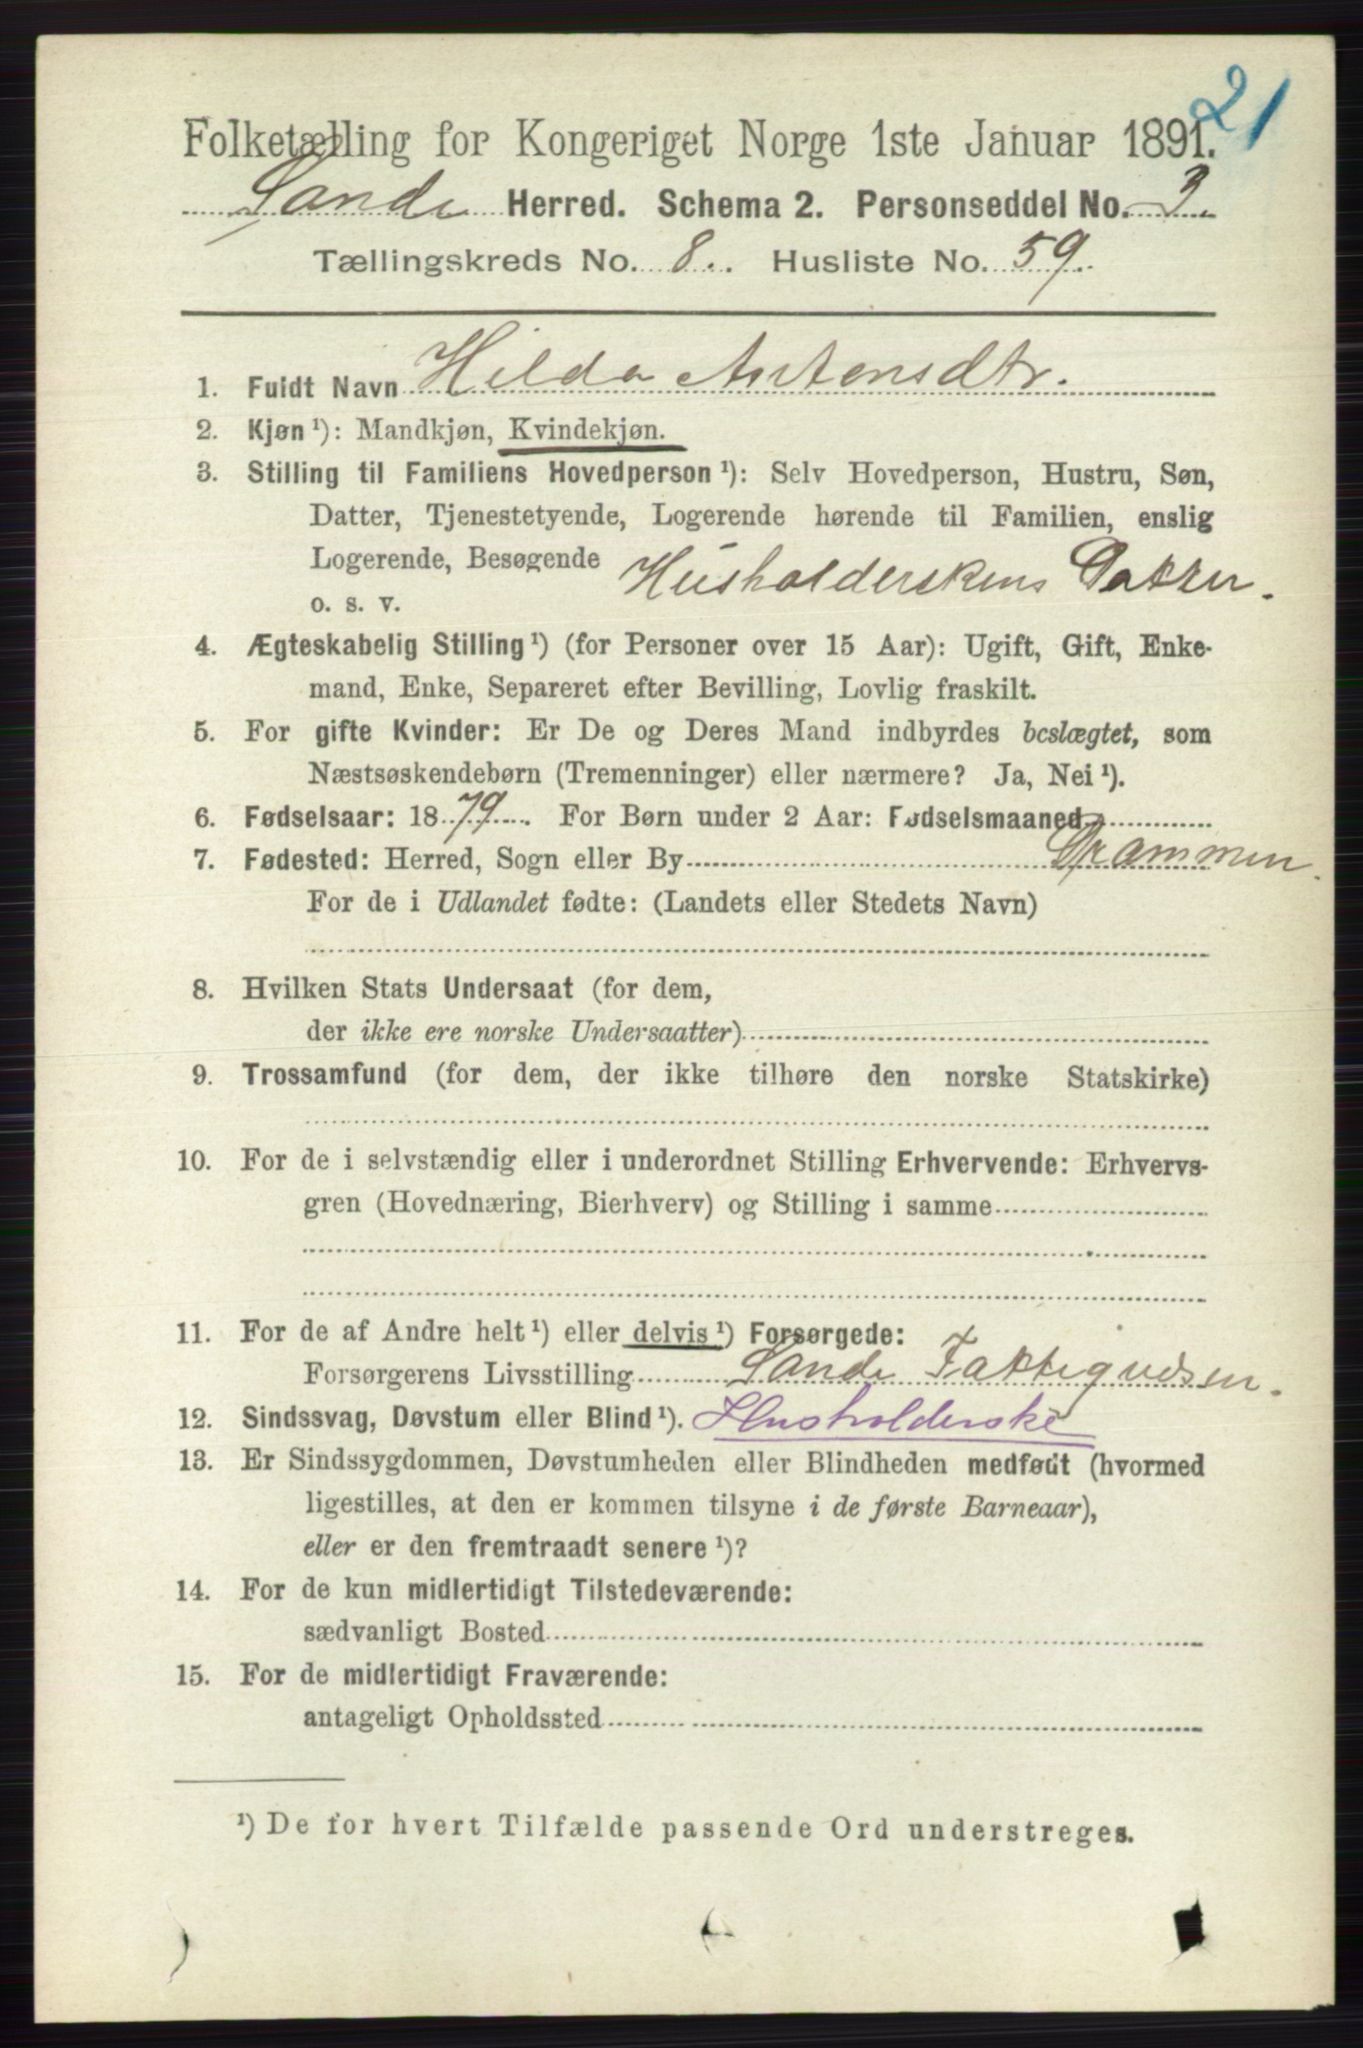 21
Folketælling for Kongeriget Norge 1ste Januar 1891.
Sande Herred. Schema 2. Personseddel No. 3.
Tællingskreds No. 8. Husliste No. 59.
1. Fuldt Navn Hilda Antonsdtr.
2. Kjøn ¹): Mandkjøn, Kvindekjøn.
3. Stilling til Familiens Hovedperson ¹): Selv Hovedperson, Hustru, Søn,
Datter, Tjenestetyende, Logerende hørende til Familien, enslig
Logerende, Besøgende Husholderskens Datter.
o. s. v.
4. Ægteskabelig Stilling ¹) (for Personer over 15 Aar): Ugift, Gift, Enke-
mand, Enke, Separeret efter Bevilling, Lovlig fraskilt.
5. For gifte Kvinder: Er De og Deres Mand indbyrdes beslægtet, som
Næstsøskendebørn (Tremenninger) eller nærmere? Ja, Nei ¹).
6. Fødselsaar: 1879. For Børn under 2 Aar: Fødselsmaaned
7. Fødested: Herred, Sogn eller By Drammen.
For de i Udlandet fødte: (Landets eller Stedets Navn)
8. Hvilken Stats Undersaat (for dem,
der ikke ere norske Undersaatter)
9. Trossamfund (for dem, der ikke tilhøre den norske Statskirke)
10. For de i selvstændig eller i underordnet Stilling Erhvervende: Erhvervs-
gren (Hovednæring, Bierhverv) og Stilling i samme
11. For de af Andre helt ¹) eller delvis ¹) Forsørgede:
Forsørgerens Livsstilling Sande Fattigvæsen.
12. Sindssvag, Døvstum eller Blind ¹). Husholderske
13. Er Sindssygdommen, Døvstumheden eller Blindheden medfødt (hvormed
ligestilles, at den er kommen tilsyne i de første Barneaar),
eller er den fremtraadt senere ¹)?
14. For de kun midlertidigt Tilstedeværende:
sædvanligt Bosted
15. For de midlertidigt Fraværende:
antageligt Opholdssted
¹) De for hvert Tilfælde passende Ord understreges.